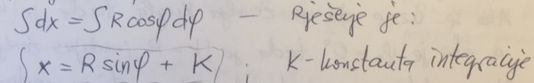 ∫dx = ∫R cosφ dφ — Rješenje je:
x = R sinφ + K ; K - konstanta integracije